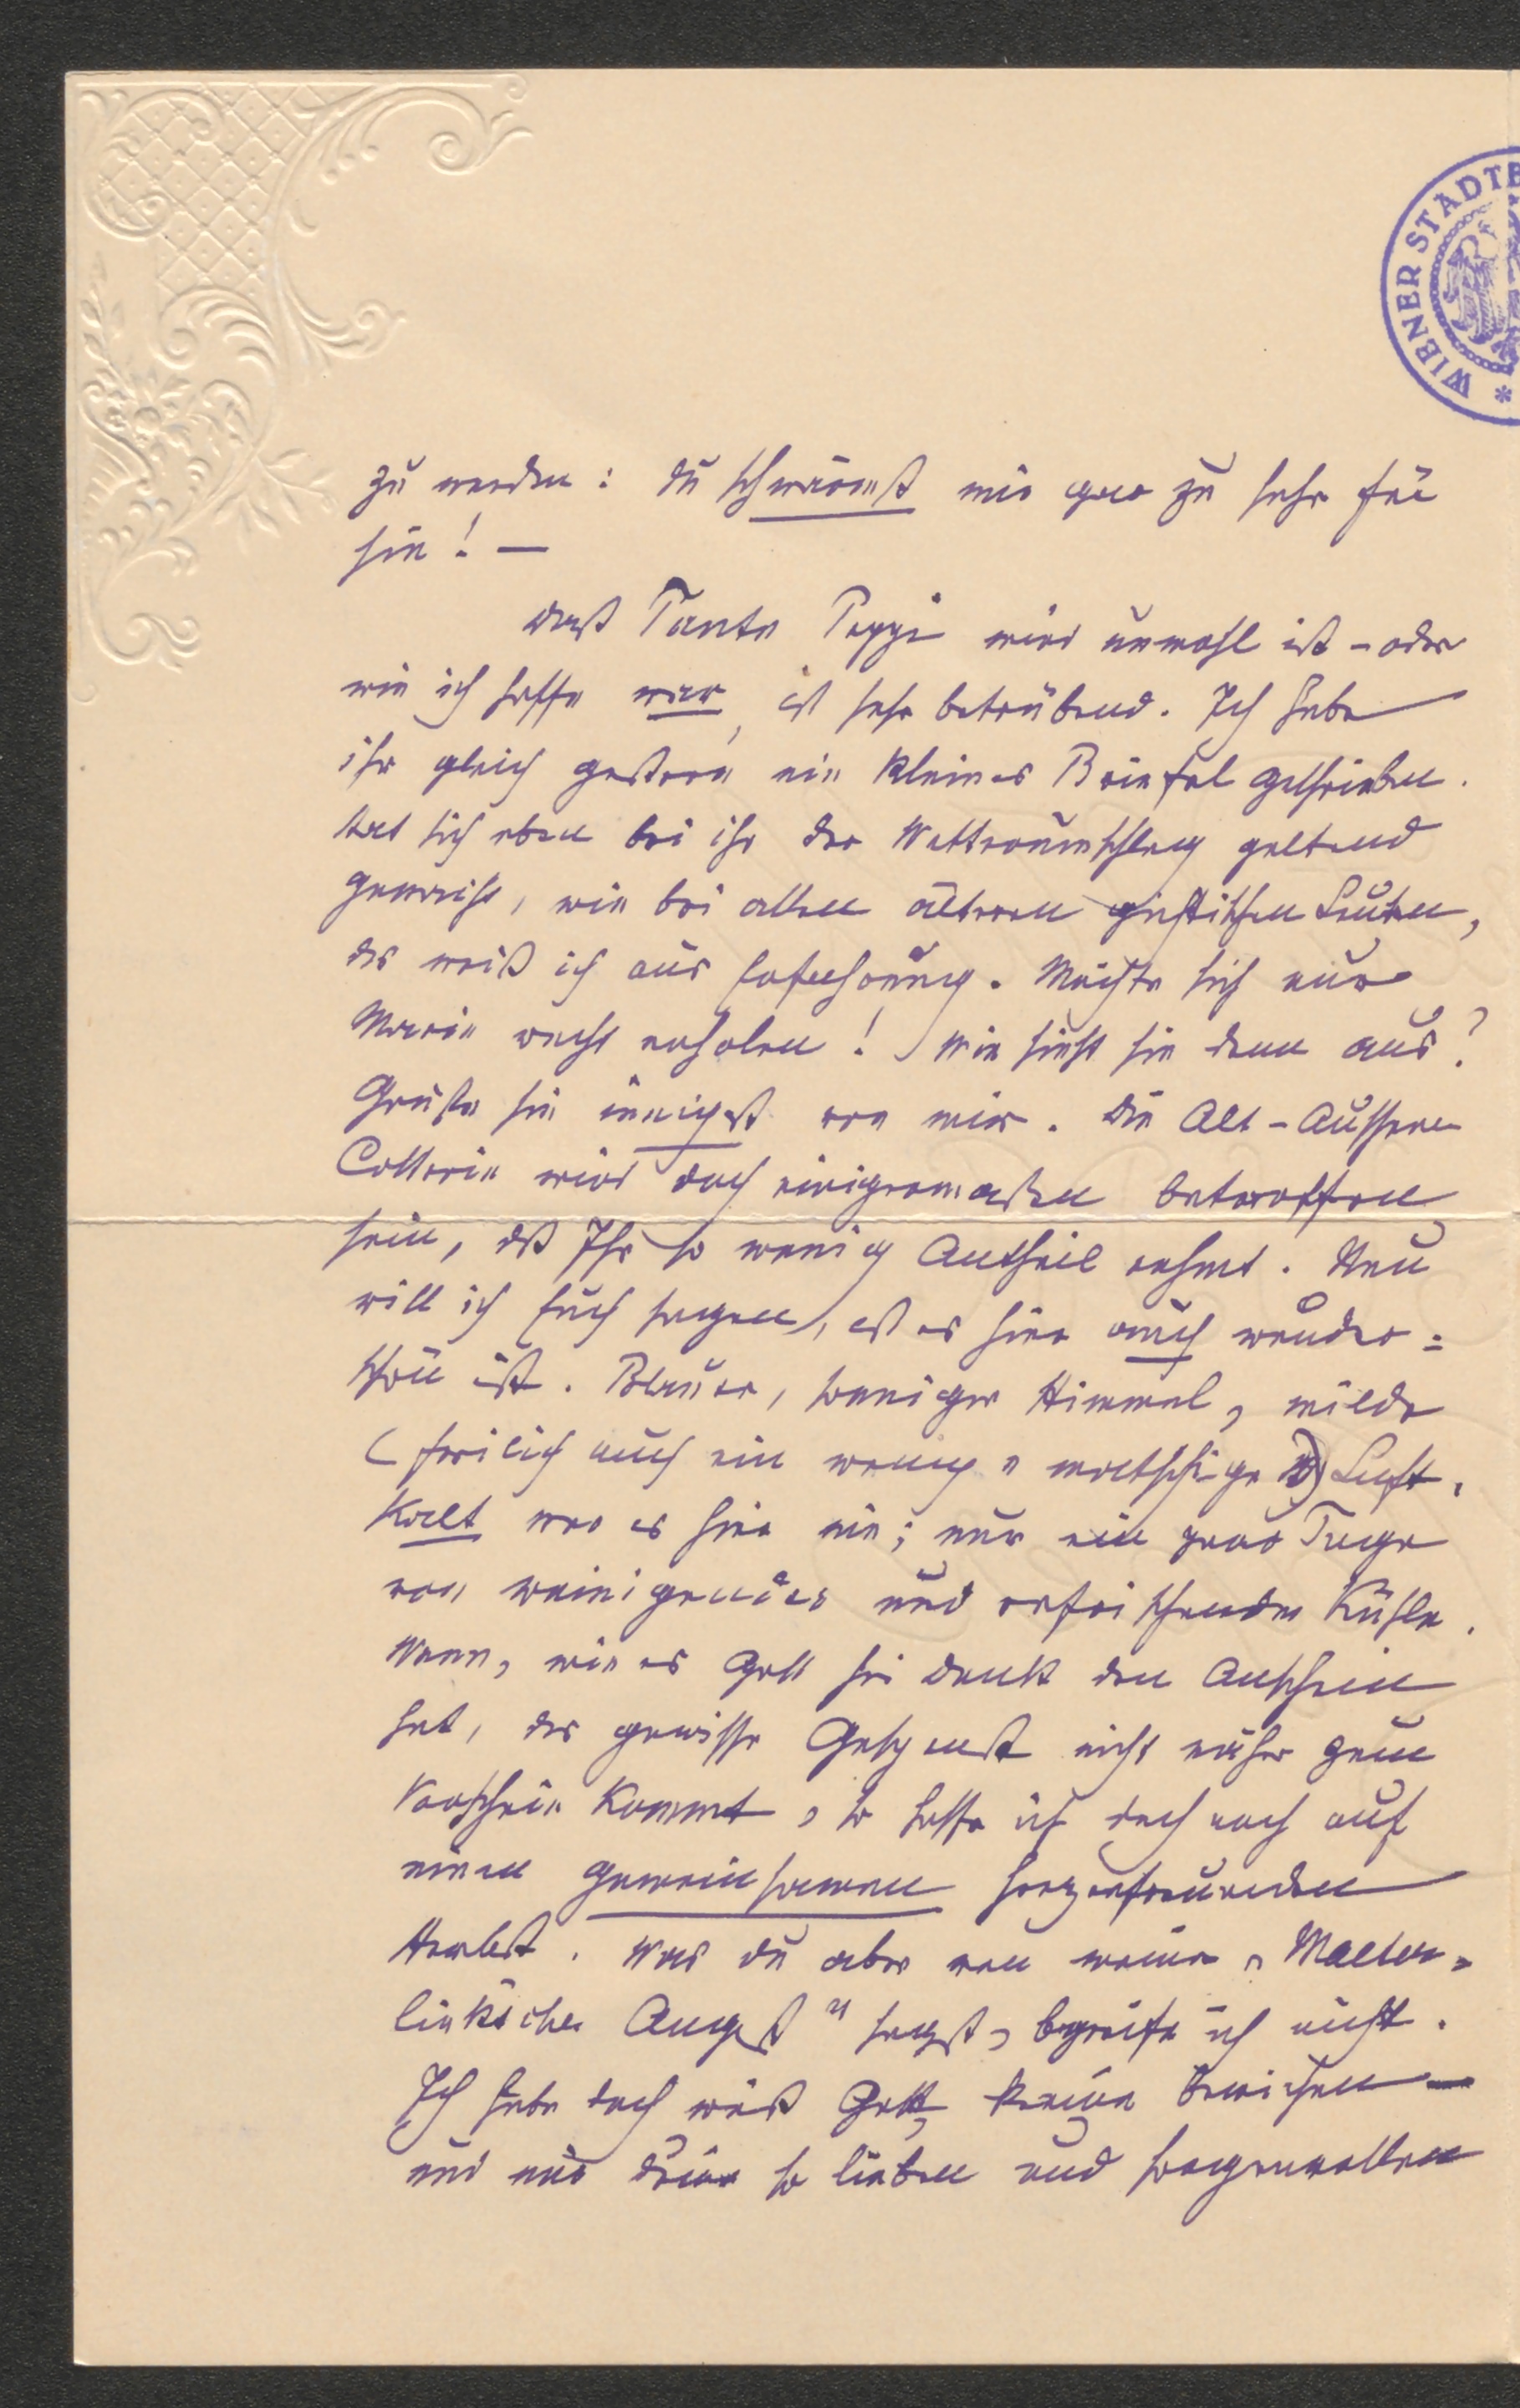 WIENER STADTB
zu werden: du schwärmst mir gar zu sehr für
sie! —
Daß Tante Peppi wied unwohl ist - oder
wie ich hoffe war, ist sehr betrübend. Ich habe
ihr gleich gestern ein kleines Brieferl geschrieben.
Hat sich eben bei ihr der Wetterumschlag geltend
gemacht, wie bei allen älteren gichtischen Leuten,
das weiß ich aus Erfahrung. Möchte sich nur
Marie recht erholen! Wie sieht sie denn aus?
Grüße sie innigst von mir. Die Alt-Ausseer
Cotterie wird doch einigermaßen betroffen
sein, dß Ihr so wenig Antheil nehmt. Nun
will ich Euch sagen, dß es hier auch wunder=
schön ist. Blauer, sonniger Himmel, milde
(freilich auch ein wenig „matschige“) Luft.
Kalt war es hier nie; nur ein paar Tage
von reinigender und erfrischender Kühle.
Wenn, wie es Gott sei Dank den Anschein
hat, das gewisse Gespenst nicht näher zum
Vorschein kommt, so hoffe ich doch noch auf
einen gemeinsamen herzerfreuenden
Herbst. Was du aber von meiner „Maeter=
linkscher Angst“ sagst, begreife ich nicht.
Ich habe doch weiß Gott, keine
und nur deine so lieben und sorgenvollen